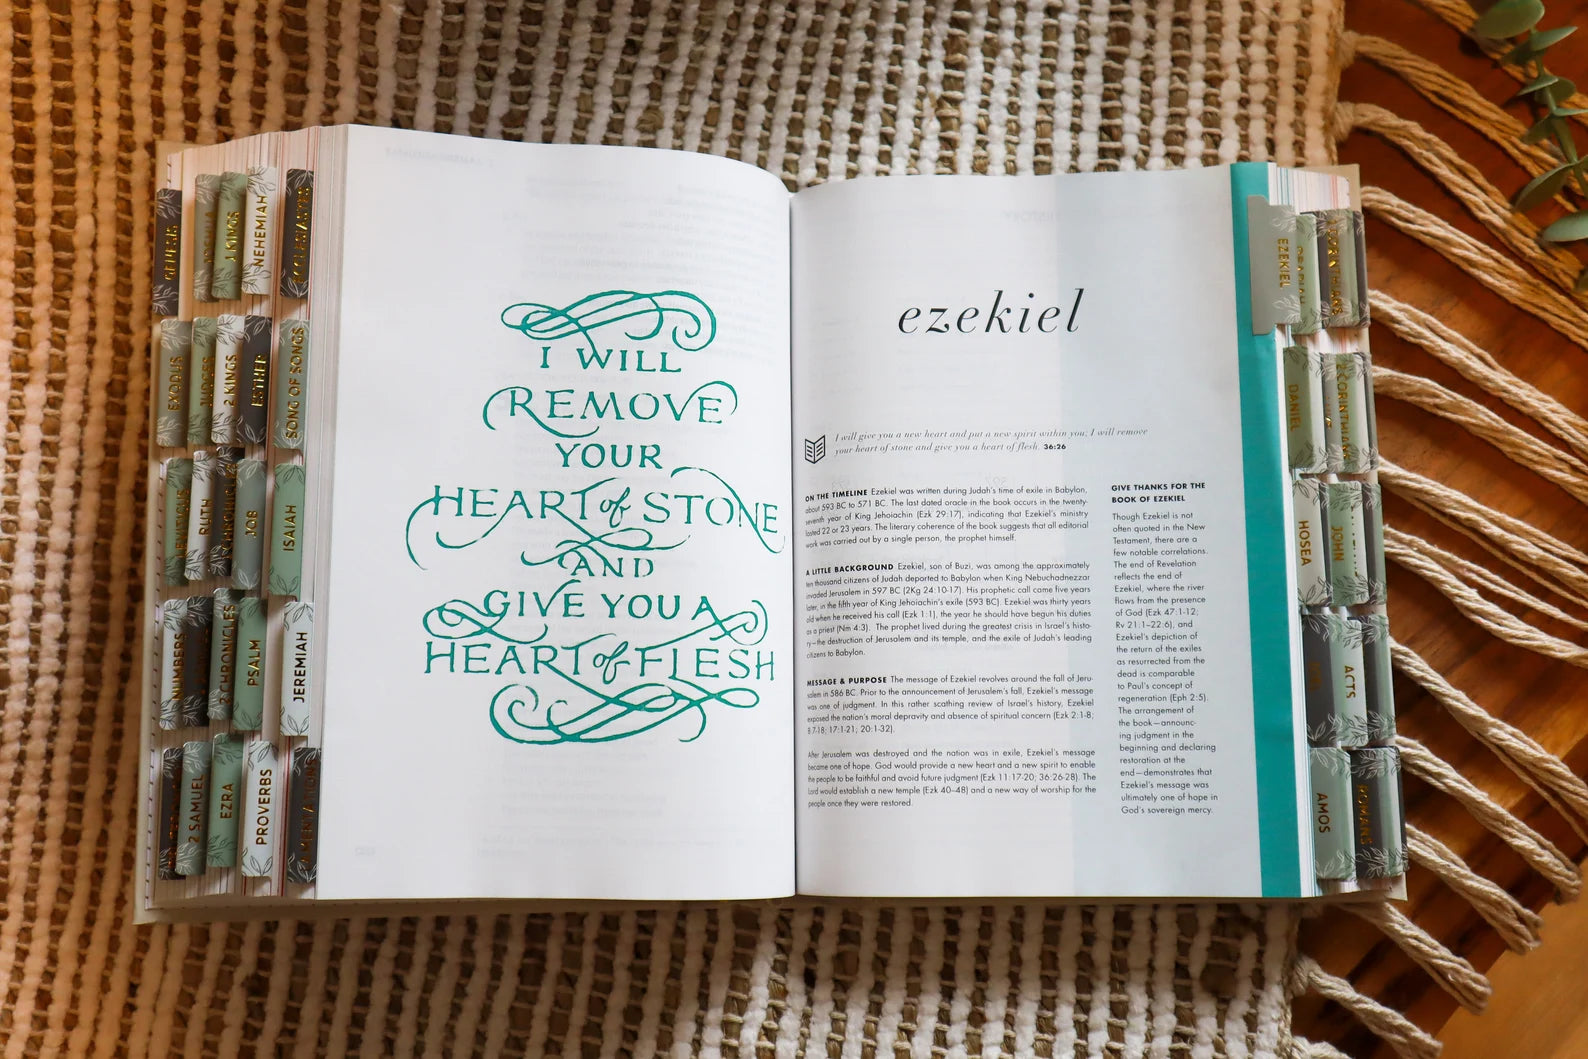 GENESIS
1 KINGS
NEHEMIAH
ECCLESIASTES
EXODUS
JUDGES
2 KINGS
ESTHER
SONG OF SONGS
LEVITICUS
RUTH
JOB
ISAIAH
NUMBERS
2 CHRONICLES
PSALM
JEREMIAH
2 SAMUEL
EZRA
PROVERBS
I WILL
REMOVE
YOUR
HEART of STONE
AND
GIVE YOU A
HEART of FLESH
ezekiel
I will give you a new heart and put a new spirit within you; I will remove
your heart of stone and give you a heart of flesh. 36:26
ON THE TIMELINE Ezekiel was written during Judah's time of exile in Babylon,
about 593 BC to 571 BC. The last dated oracle in the book occurs in the twenty-
seventh year of King Jehoiachin (Ezk 29:17), indicating that Ezekiel's ministry
lasted 22 or 23 years. The literary coherence of the book suggests that all editorial
work was carried out by a single person, the prophet himself.
A LITTLE BACKGROUND Ezekiel, son of Buzi, was among the approximately
ten thousand citizens of Judah deported to Babylon when King Nebuchadnezzar
invaded Jerusalem in 597 BC (2Kg 24:10-17). His prophetic call came five years
later, in the fifth year of King Jehoiachin's exile (593 BC). Ezekiel was thirty years
old when he received his call (Ezk 1:1), the year he should have begun his duties
as a priest (Nm 4:3). The prophet lived during the greatest crisis in Israel's histo-
ry—the destruction of Jerusalem and its temple, and the exile of Judah's leading
citizens to Babylon.
MESSAGE & PURPOSE The message of Ezekiel revolves around the fall of Jeru-
salem in 586 BC. Prior to the announcement of Jerusalem's fall, Ezekiel's message
was one of judgment. In this rather scathing review of Israel's history, Ezekiel
exposed the nation's moral depravity and absence of spiritual concern (Ezk 2:1-8;
8:7-18; 17:1-21; 20:1-32).
After Jerusalem was destroyed and the nation was in exile, Ezekiel's message
became one of hope. God would provide a new heart and a new spirit to enable
the people to be faithful and avoid future judgment (Ezk 11:17-20; 36:26-28). The
Lord would establish a new temple (Ezk 40–48) and a new way of worship for the
people once they were restored.
GIVE THANKS FOR THE
BOOK OF EZEKIEL
Though Ezekiel is not
often quoted in the New
Testament, there are a
few notable correlations.
The end of Revelation
reflects the end of
Ezekiel, where the river
flows from the presence
of God (Ezk 47:1-12;
Rv 21:1–22:6), and
Ezekiel's depiction of
the return of the exiles
as resurrected from the
dead is comparable
to Paul's concept of
regeneration (Eph 2:5).
The arrangement of
the book—announc-
ing judgment in the
beginning and declaring
restoration at the
end—demonstrates that
Ezekiel's message was
ultimately one of hope in
God's sovereign mercy.
EZEKIEL
DANIEL
2 CORINTHIANS
HOSEA
JOHN
ACTS
AMOS
ROMANS